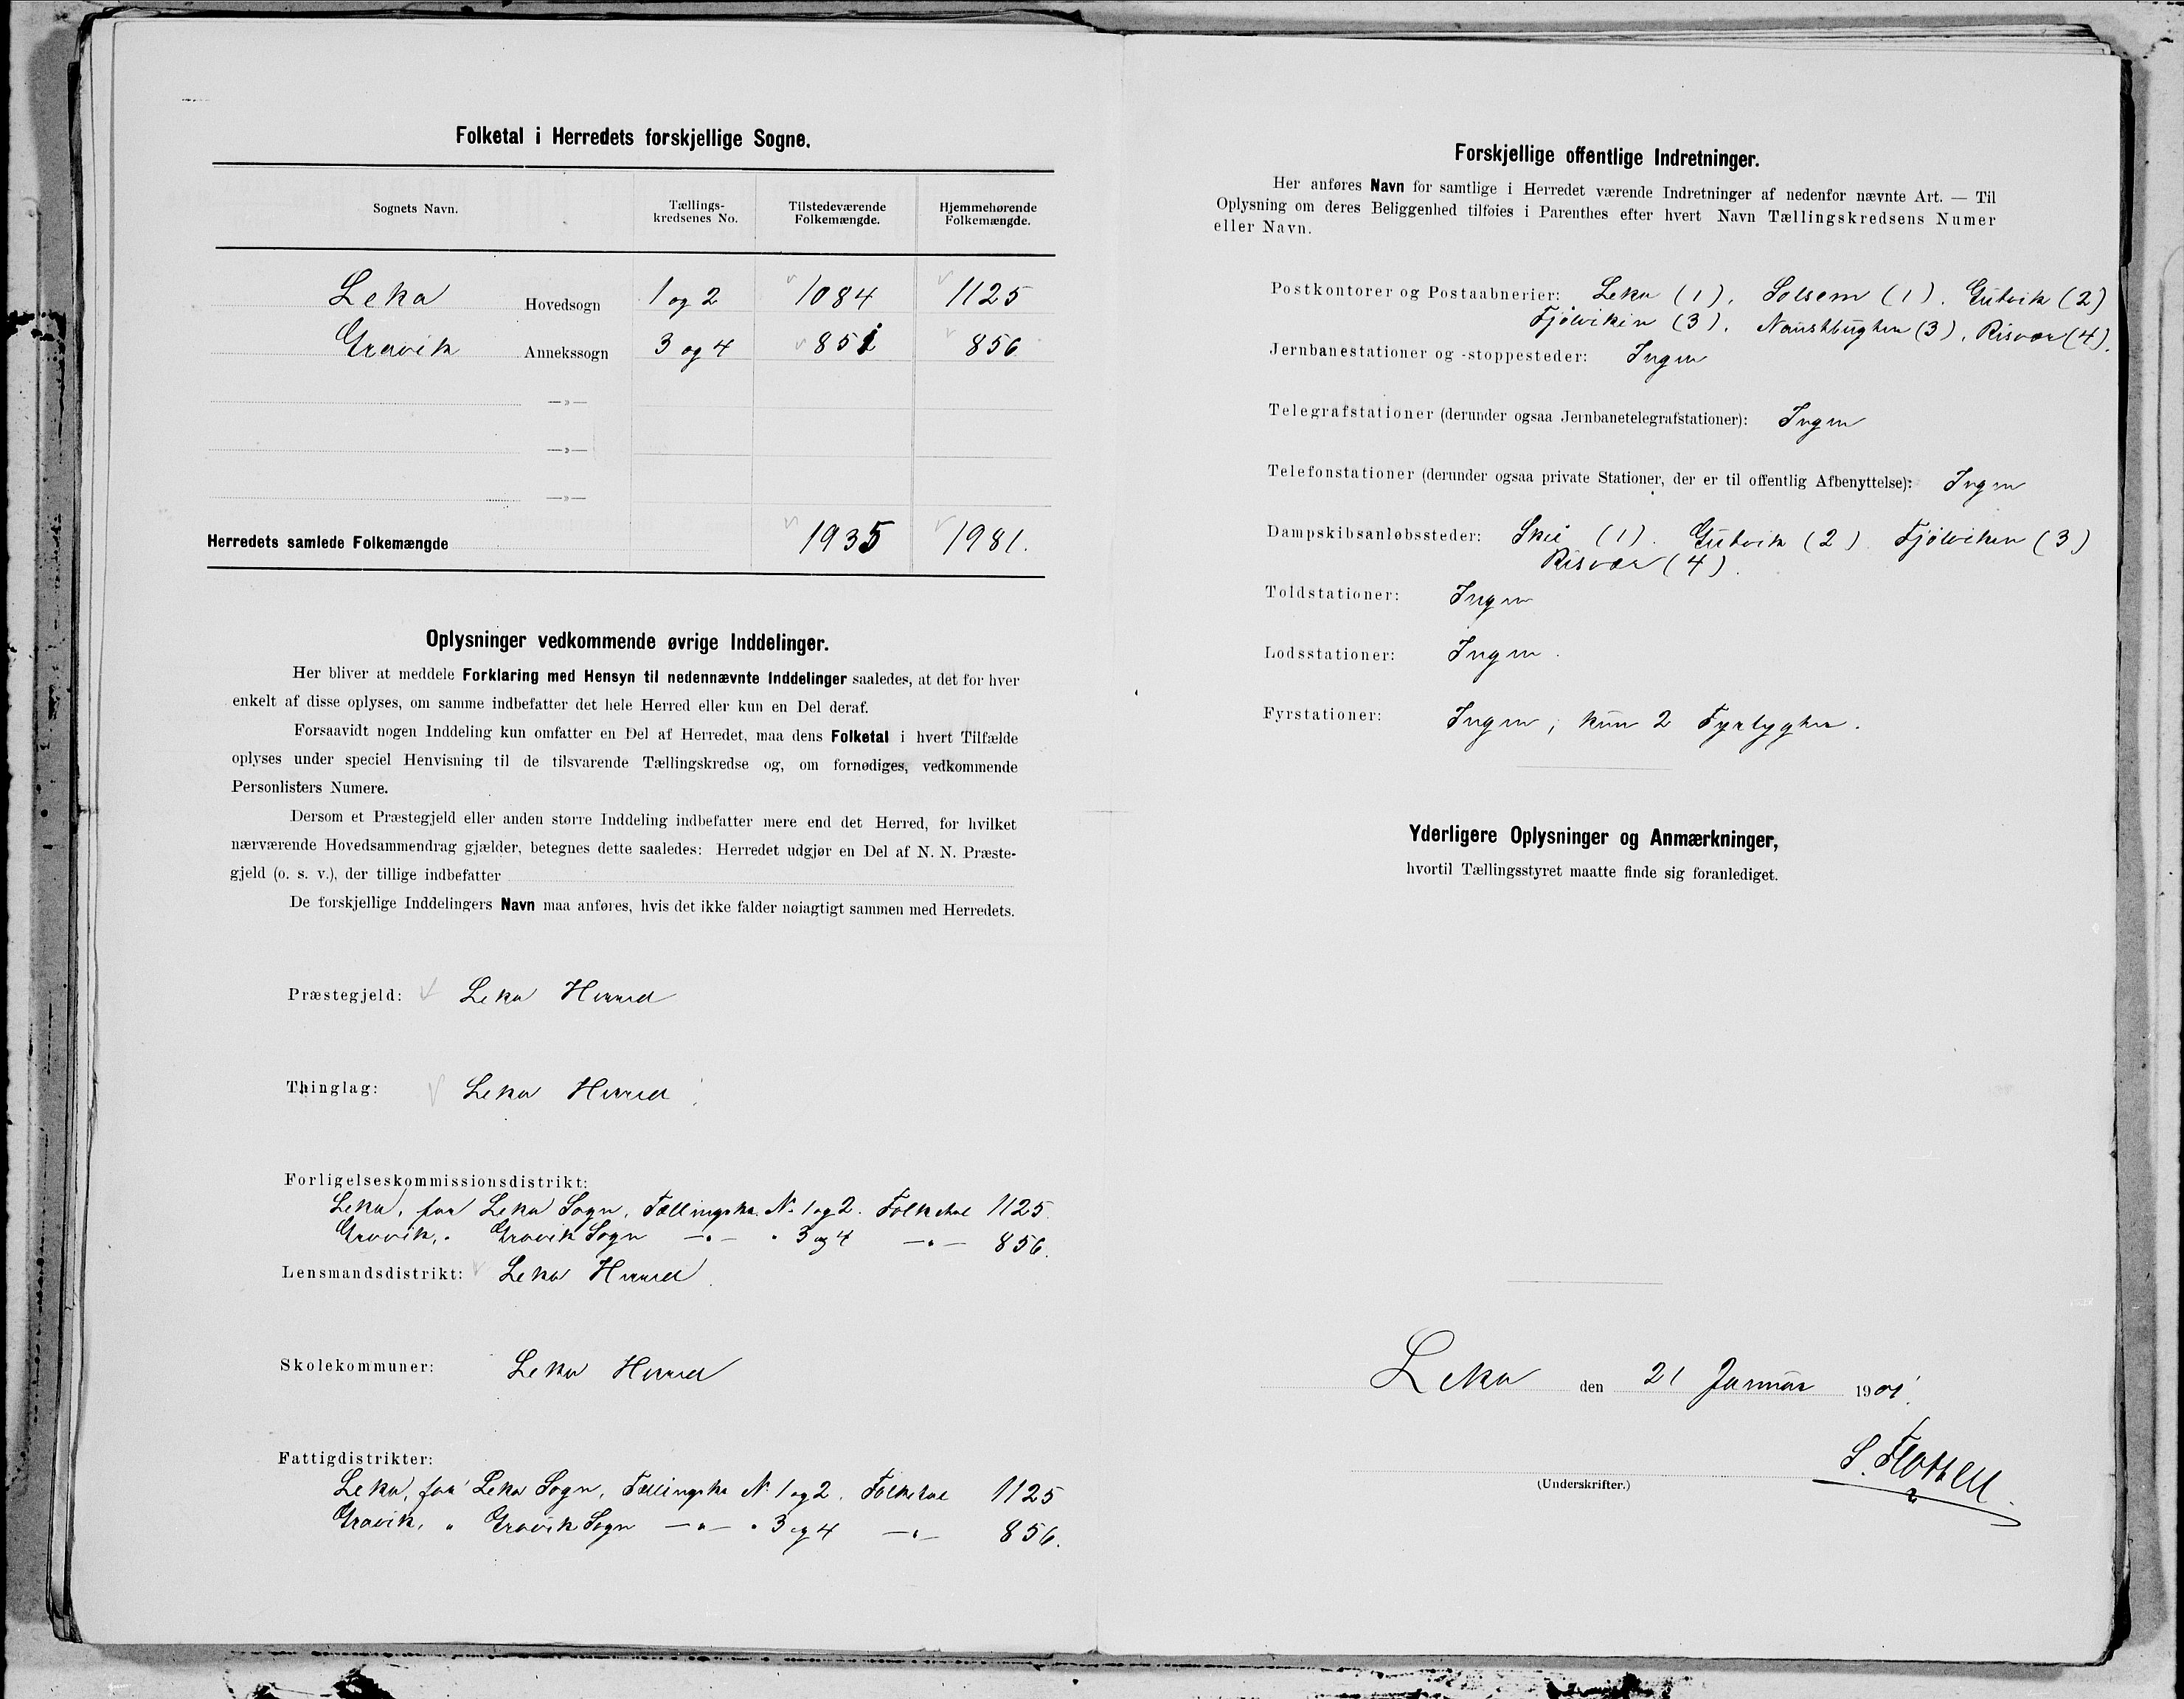 Folketal i Herredets forskjellige Sogne.
Sognets Navn. Tællings-kredsenes No. Tilstedeværende Folkemængde. Hjemmehørende Folkemængde.
Leka Hovedsogn 1 og 2 1084 1125
Gravik Annekssogn 3 og 4 851 856
—»—
—»—
—»—
Herredets samlede Folkemængde 1935 1981.
Oplysninger vedkommende øvrige Inddelinger.
Her bliver at meddele Forklaring med Hensyn til nedennævnte Inddelinger saaledes, at det for hver
enkelt af disse oplyses, om samme indbefatter det hele Herred eller kun en Del deraf.
Forsaavidt nogen Inddeling kun omfatter en Del af Herredet, maa dens Folketal i hvert Tilfælde
oplyses under speciel Henvisning til de tilsvarende Tællingskredse og, om fornødiges, vedkommende
Personlisters Numere.
Dersom et Præstegjeld eller anden større Inddeling indbefatter mere end det Herred, for hvilket
nærværende Hovedsammendrag gjælder, betegnes dette saaledes: Herredet udgjør en Del af N. N. Præste-
gjeld (o. s. v.), der tillige indbefatter
De forskjellige Inddelingers Navn maa anføres, hvis det ikke falder nøiagtigt sammen med Herredets.
Præstegjeld: Leka Herred
Thinglag: Leka Herred
Forligelseskommissionsdistrikt:
Leka, for Leka Sogn, Tællingskr. N. 1 og 2. Folketal 1125.
Gravik, " Gravik Sogn —"— " 3 og 4 —"— 856.
Lensmandsdistrikt: Leka Herred
Skolekommuner: Leka Herred
Fattigdistrikter:
Leka, for Leka Sogn, Tællingskr N. 1 og 2. Folketal 1125
Gravik, " Gravik Sogn —"— " 3 og 4 —"— 856.
Forskjellige offentlige Indretninger.
Her anføres Navn for samtlige i Herredet værende Indretninger af nedenfor nævnte Art. — Til
Oplysning om deres Beliggenhed tilføies i Parenthes efter hvert Navn Tællingskredsens Numer
eller Navn.
Postkontorer og Postaabnerier: Leka (1), Solsem (1), Gutvik (2)
Fjølviken (3), Naustbugten (3), Risvær (4).
Jernbanestationer og -stoppesteder: Ingen
Telegrafstationer (derunder ogsaa Jernbanetelegrafstationer): Ingen
Telefonstationer (derunder ogsaa private Stationer, der er til offentlig Afbenyttelse): Ingen
Dampskibsanløbssteder: Skei (1). Gutvik (2) Fjølviken (3)
Risvær (4).
Toldstationer: Ingen
Lodsstationer: Ingen.
Fyrstationer: Ingen, kun 2 Fyrlygter.
Yderligere Oplysninger og Anmærkninger,
hvortil Tællingsstyret maatte finde sig foranlediget.
Leka den 21 Januar 1901.
(Underskrifter.)